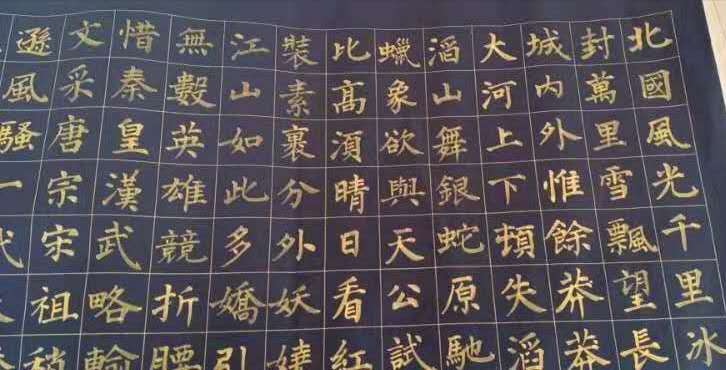 北國風光千里冰
封萬里雪飄望長
城內外惟餘莽莽
大河上下頓失滔
滔山舞銀蛇原馳
蠟象欲與天公試
比高湏晴日看紅
裝素裹分外妖嬈
江山如此多嬌引
無數英雄競折腰
惜秦皇漢武略輸
文采唐宗宋祖稍
遜風騷一代